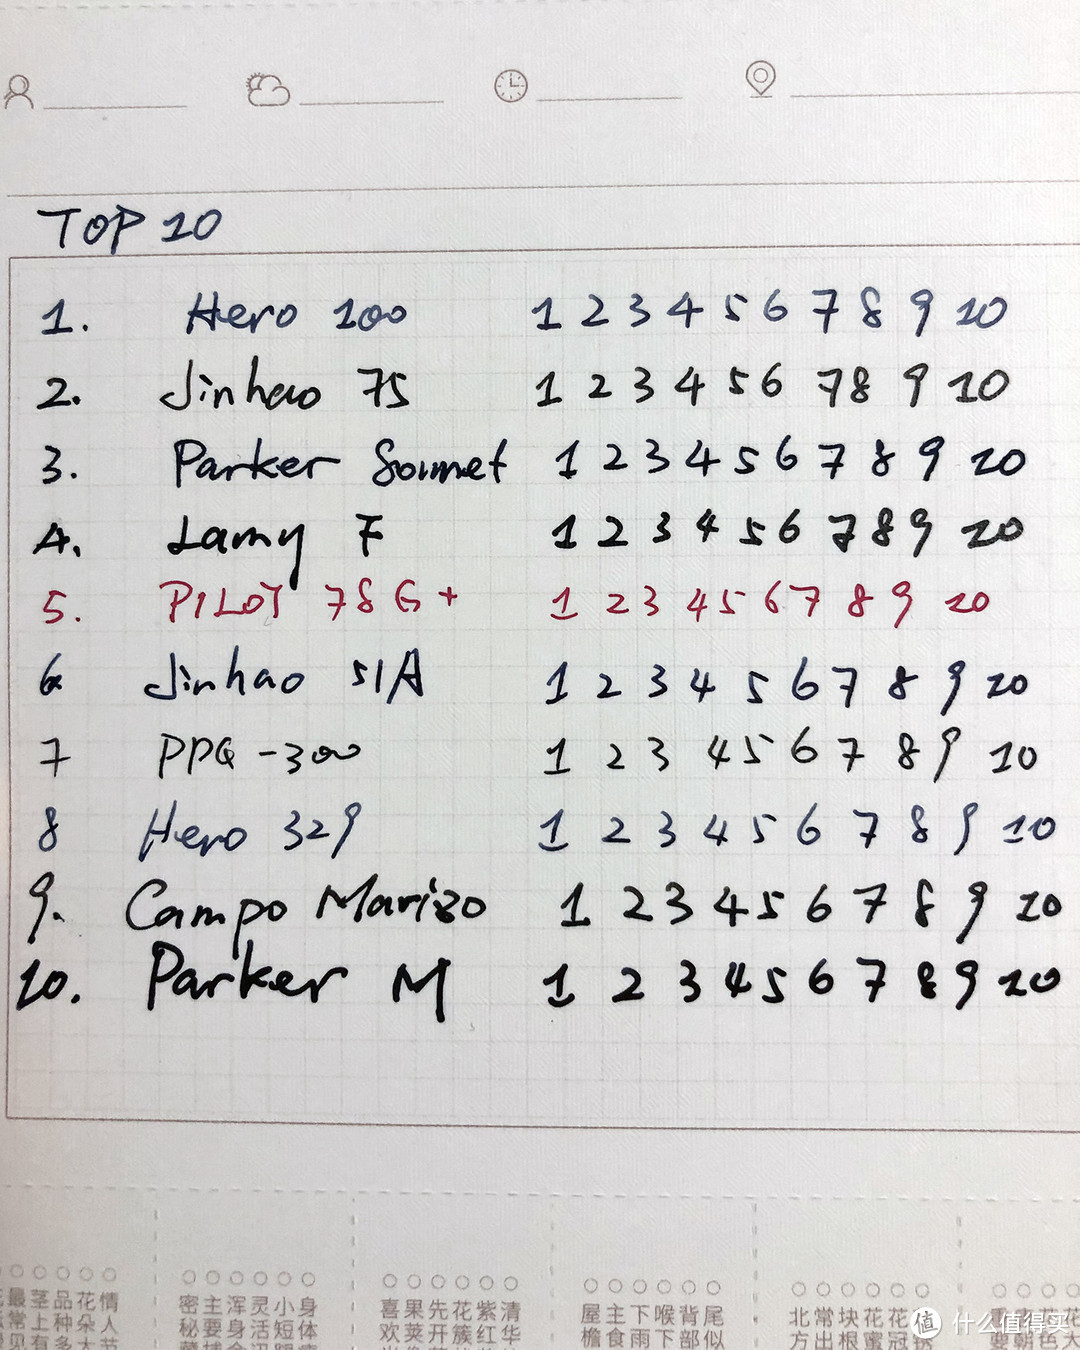 TOP 10
1. Hero 100 1 2 3 4 5 6 7 8 9 10
2. Jinhao 75 1 2 3 4 5 6 7 8 9 10
3. Parker Sonnet 1 2 3 4 5 6 7 8 9 10
4. Lamy F 1 2 3 4 5 6 7 8 9 10
5. PILOT 78G+ 1 2 3 4 5 6 7 8 9 10
6 Jinhao 51A 1 2 3 4 5 6 7 8 9 10
7 PPQ-300 1 2 3 4 5 6 7 8 9 10
8 Hero 329 1 2 3 4 5 6 7 8 9 10
9. Campo Marizo 1 2 3 4 5 6 7 8 9 10
10. Parker M 1 2 3 4 5 6 7 8 9 10
情人节
花朵大
品种多
茎上有
最常见
身体
小短
灵活
浑身
主要
密秘
清华
紫红
花簇
先开
果荚
喜欢
尾似
背部
喉下
下雨
主食
屋檐
花冠
花蜜
块根
常出
北方
值 什么值得买